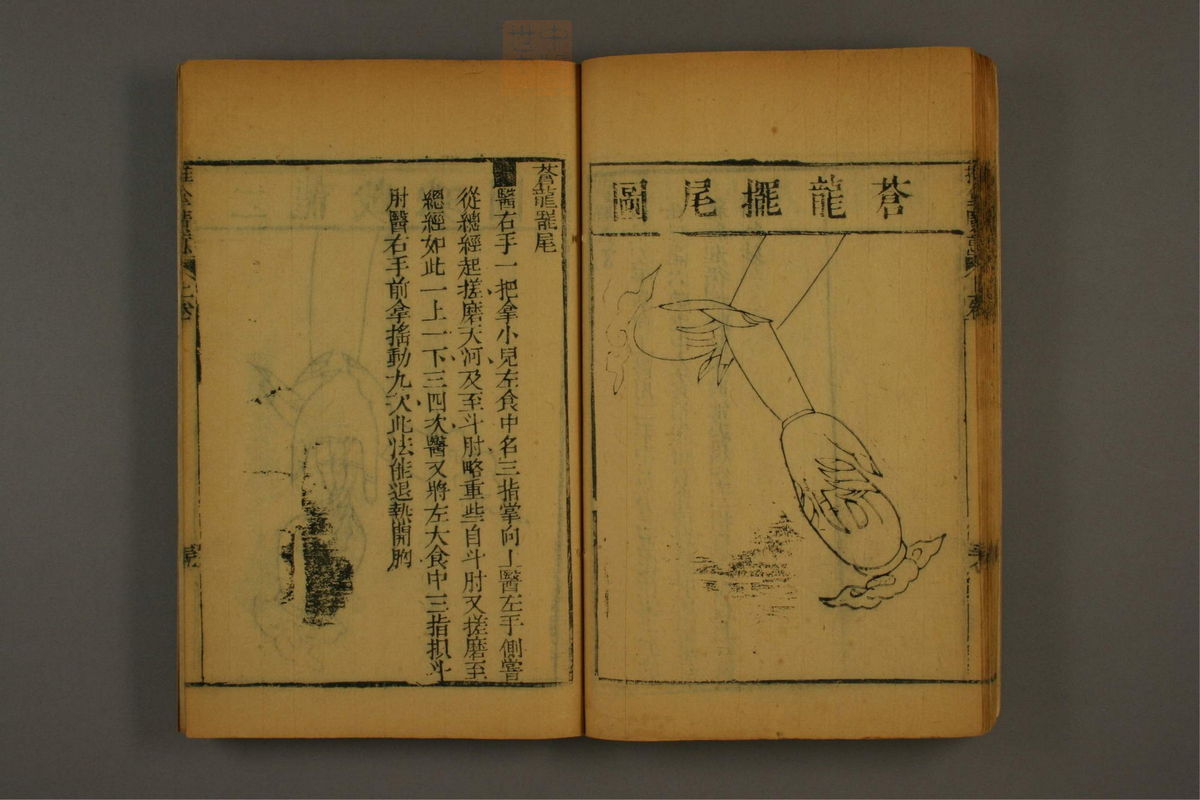 蒼龍擺尾圖
蒼龍擺尾
醫右手一把拿小兒左食中名三指掌向上醫左手側嘗
從總經起搓磨天河及至斗肘略重些自斗肘又搓磨至
總經如此一上一下三四次醫又將左大食中三指抯斗
肘醫右手前拿搖動九次此法能退熱開胸